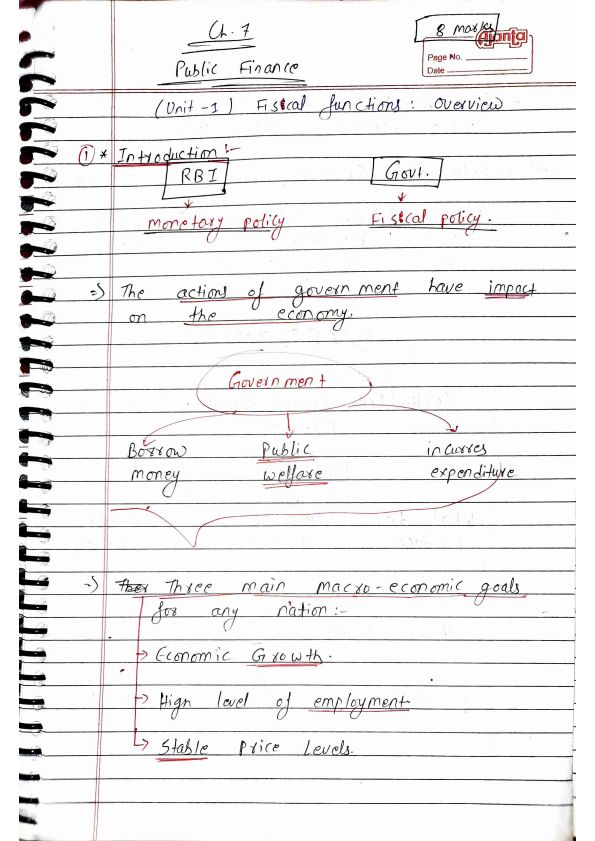 Ch. 7
8 marks
Ajanta
Page No.
Date
Public Finance
(Unit -1) Fisical functions : Overview
① * Introduction :-
RBI
Govt.
monetary policy
Fisical policy.
=> The actions of government have impact
on the economy.
Government
Borrow Public incurres
money welfare expenditure
=> Three main macro-economic goals
for any nation :-
→ Economic Growth.
→ High level of employment
→ Stable Price Levels.